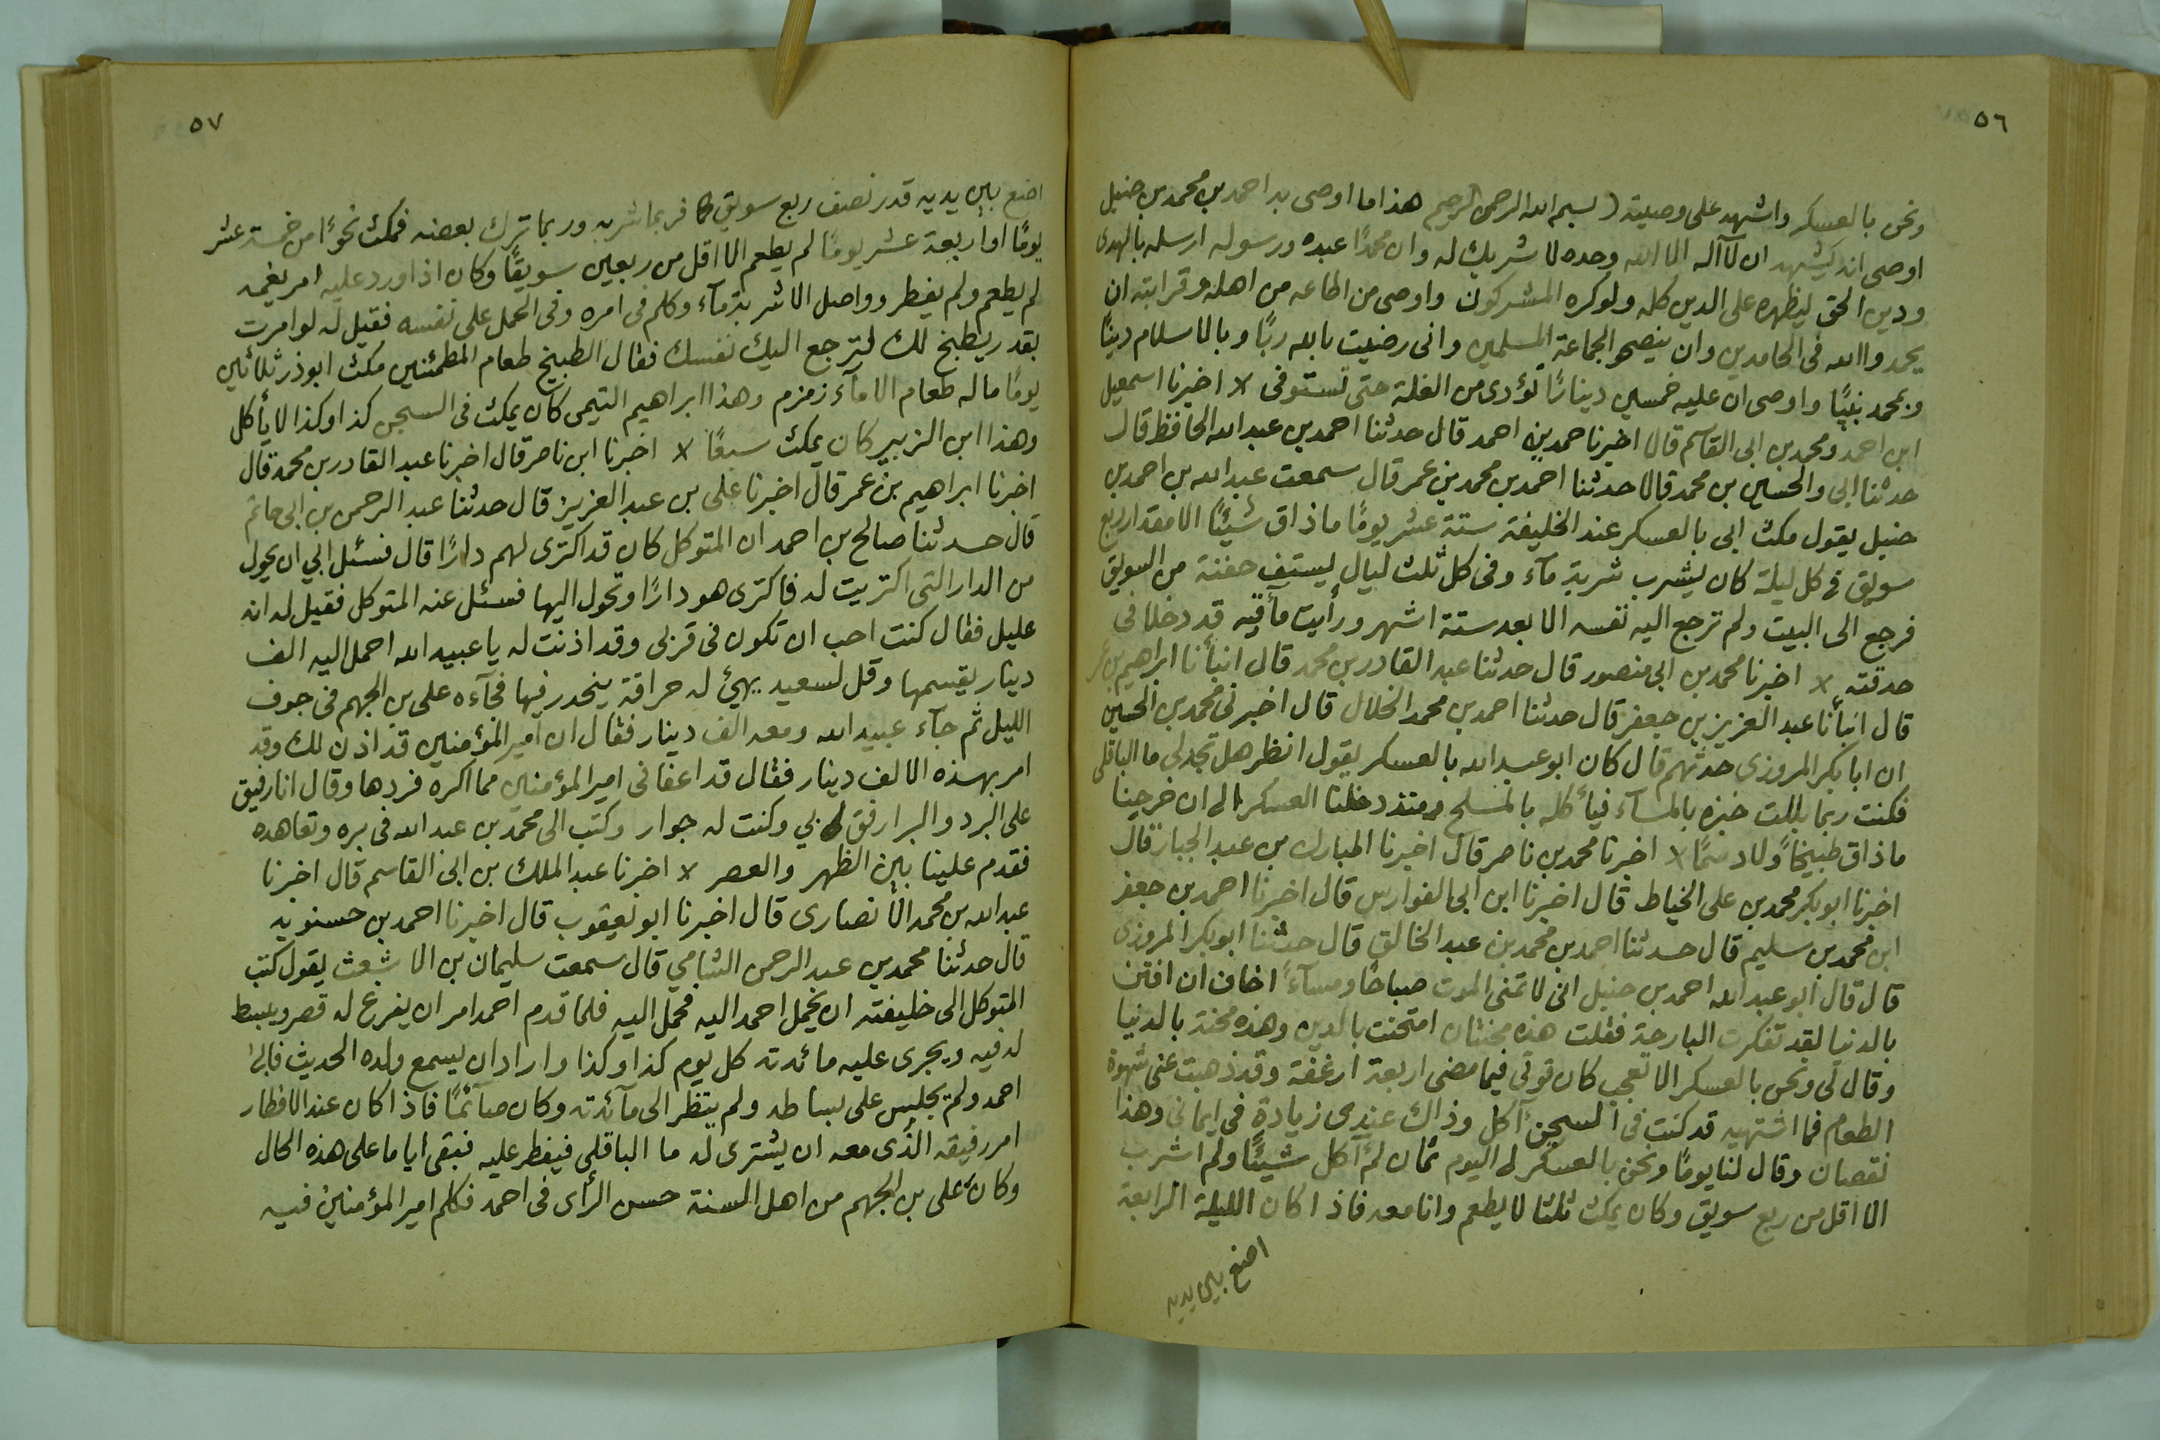 ٥٦
ونحن بالعسكر واشهد على وصيته (بسم الله الرحمن الرحيم هذا ما اوصى به احمد بن محمد بن حنبل
اوصى انه يشهد ان لا آله الا الله وحده لا شريك له وان محمدًا عبده ورسوله ارسله بالهدى
ودين الحق ليظهره على الدين كله ولو كره المشركون واوصى من اطاعه من اهله وقرابته ان
يحمدوا الله فى الحامدين وان ينصحوا لجماعة المسلمين وانى رضيت بالله ربًا وبالاسلام دينًا
وبمحمد نبيًا واوصى ان عليه خمسين دينارًا تؤدى من الغلة حتى تستوفى لا اخبرنا اسمعيل
ابن احمد ومحمد بن ابى القاسم قالا اخبرنا حمد بن احمد قال حدثنا احمد بن عبد الله الحافظ قال
حدثنا ابى والحسين بن محمد قالا حدثنا احمد بن محمد بن عمر قال سمعت عبد الله بن احمد بن
حنبل يقول مكث ابى بالعسكر عند الخليفة ستة عشر يومًا ما ذاق شيئًا الا مقدار ربع
سويق فى كل ليلة كان يشرب شربة مآء وفى كل ثلث ليال يستف حفنة من السويق
فرجع الى البيت ولم ترجع اليه نفسه الا بعد ستة اشهر ورأيت مآقيه قد دخلا فى
حدقته لا اخبرنا محمد بن ابى منصور قال حدثنا عبد القادر بن محمد قال انبأنا ابراهيم بن عمر
قال انبأنا عبد العزيز بن جعفر قال حدثنا احمد بن محمد الخلال قال اخبرنى محمد بن الحسين
ان ابا بكر المروزى حدثهم قال كان ابو عبد الله بالعسكر يقول انظر هل تجد لى ما الباقلى
فكنت ربما بللت خبزه بالمآء فيأكله بالملح ومنذ دخلنا العسكر الى ان خرجنا
ما ذاق طبيخًا ولا دسمًا لا اخبرنا محمد بن ناصر قال اخبرنا المبارك بن عبد الجبار قال
اخبرنا ابو بكر محمد بن على الخياط قال اخبرنا ابن ابى الفوارس قال اخبرنا احمد بن جعفر
ابن محمد بن سليم قال حدثنا احمد بن محمد بن عبد الخالق قال حدثنا ابو بكر المروزى
قال قال ابو عبد الله احمد بن حنبل انى لاتمنى الموت صباحًا ومسآءً اخاف ان افتن
بالدنيا لقد تفكرت البارحة فقلت هذه محنتان امتحنت بالدين وهذه محنة بالدنيا
وقال لى ونحن بالعسكر الا تعجب كان قوتى فيما مضى اربعة ارغفة وقد ذهبت عنى شهوة
الطعام فما اشتهيه قد كنت فى السجن آكل وذاك عندى زيادة فى ايمانى وهذا
نقصان وقال لنا يومًا ونحن بالعسكر لى اليوم ثمان لم آكل شيئًا ولم اشرب
الا اقل من ربع سويق وكان يمكث ثلثا لا يطعم وانا معه فاذا كان الليلة الرابعة
اضع بين يديه
٥٧
اضع بين يديه قدر نصف ربع سويق فربما شربه وربما ترك بعضه فمكث نحوًا من خمسة عشر
يومًا او اربعة عشر يومًا لم يطعم الا اقل من ربعين سويقًا وكان اذا ورد عليه امر يغمه
لم يطعم ولم يفطر وواصل الا شربة مآء وكلم فى امره وفى الحمل على نفسه فقيل له لو امرت
بقدر يطبخ لك لترجع اليك نفسك فقال الطبيخ طعام المطمئنين مكث ابو ذر ثلاثين
يومًا ما له طعام الا مآء زمزم وهذا ابراهيم التيمى كان يمكث فى السجن كذا وكذا لا يأكل
وهذا ابن الزبير كان يمكث سبعًا لا اخبرنا ابن ناصر قال اخبرنا عبد القادر بن محمد قال
اخبرنا ابراهيم بن عمر قال اخبرنا على بن عبد العزيز قال حدثنا عبد الرحمن بن ابى حاتم
قال حدثنا صالح بن احمد ان المتوكل كان قد اكترى لهم دارًا قال فسئل ابي ان يحول
من الدار التى اكتريت له فاكترى هو دارًا وتحول اليها فسئل عنه المتوكل فقيل له انه
عليل فقال كنت احب ان تكون فى قربى وقد اذنت له يا عبيد الله احمل اليه الف
دينار يقسمها وقل لسعيد يهئ له حراقة ينحدر فيها فجآءه على بن الجهم فى جوف
الليل ثم جآء عبيد الله ومعه الف دينار فقال ان امير المؤمنين قد اذن لك وقد
امر بهذه الالف دينار فقال قد اعفانى امير المؤمنين مما اكره فردها وقال انا رفيق
على البرد والبر ارفق بي وكنت له جوار وكتب الى محمد بن عبد الله فى بره وتعاهده
فقدم علينا بين الظهر والعصر لا اخبرنا عبد الملك بن ابى القاسم قال اخبرنا
عبد الله بن محمد الانصارى قال اخبرنا ابو يعقوب قال اخبرنا احمد بن حسنويه
قال حدثنا محمد بن عبد الرحمن الشامي قال سمعت سليمان بن الاشعث يقول كتب
المتوكل الى خليفته ان يحمل احمد اليه فحمل اليه فلما قدم احمد امر ان يفرغ له قصر ويبسط
له فيه ويجرى عليه مائدته كل يوم كذا وكذا واراد ان يسمع ولده الحديث فابى
احمد ولم يجلس على بساطه ولم ينظر الى مآئدته وكان صآئمًا فاذا كان عند الافطار
امر رفيقه الذى معه ان يشترى له ما الباقلى فيفطر عليه فبقى اياما على هذه الحال
وكان على بن الجهم من اهل السنة حسن الرأى فى احمد فكلم امير المؤمنين فيه